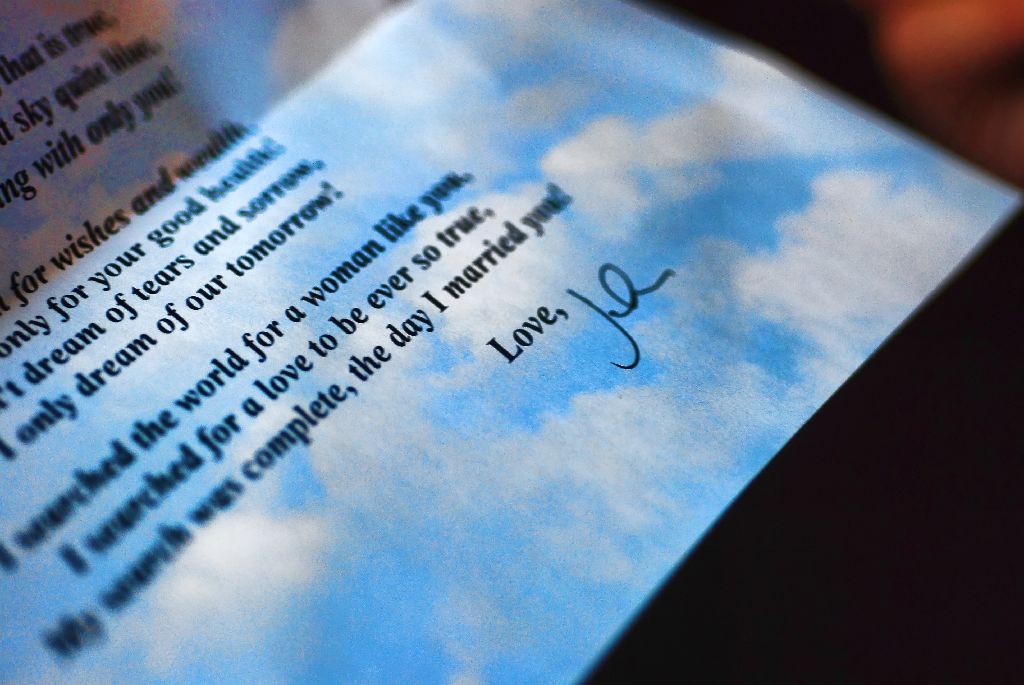 that is true,
sky quite blue,
with only you!
for wishes and wealth,
only for your good health!
dream of tears and sorrow,
I only dream of our tomorrow!
I searched the world for a woman like you,
I searched for a love to be ever so true,
My search was complete, the day I married you!
Love,